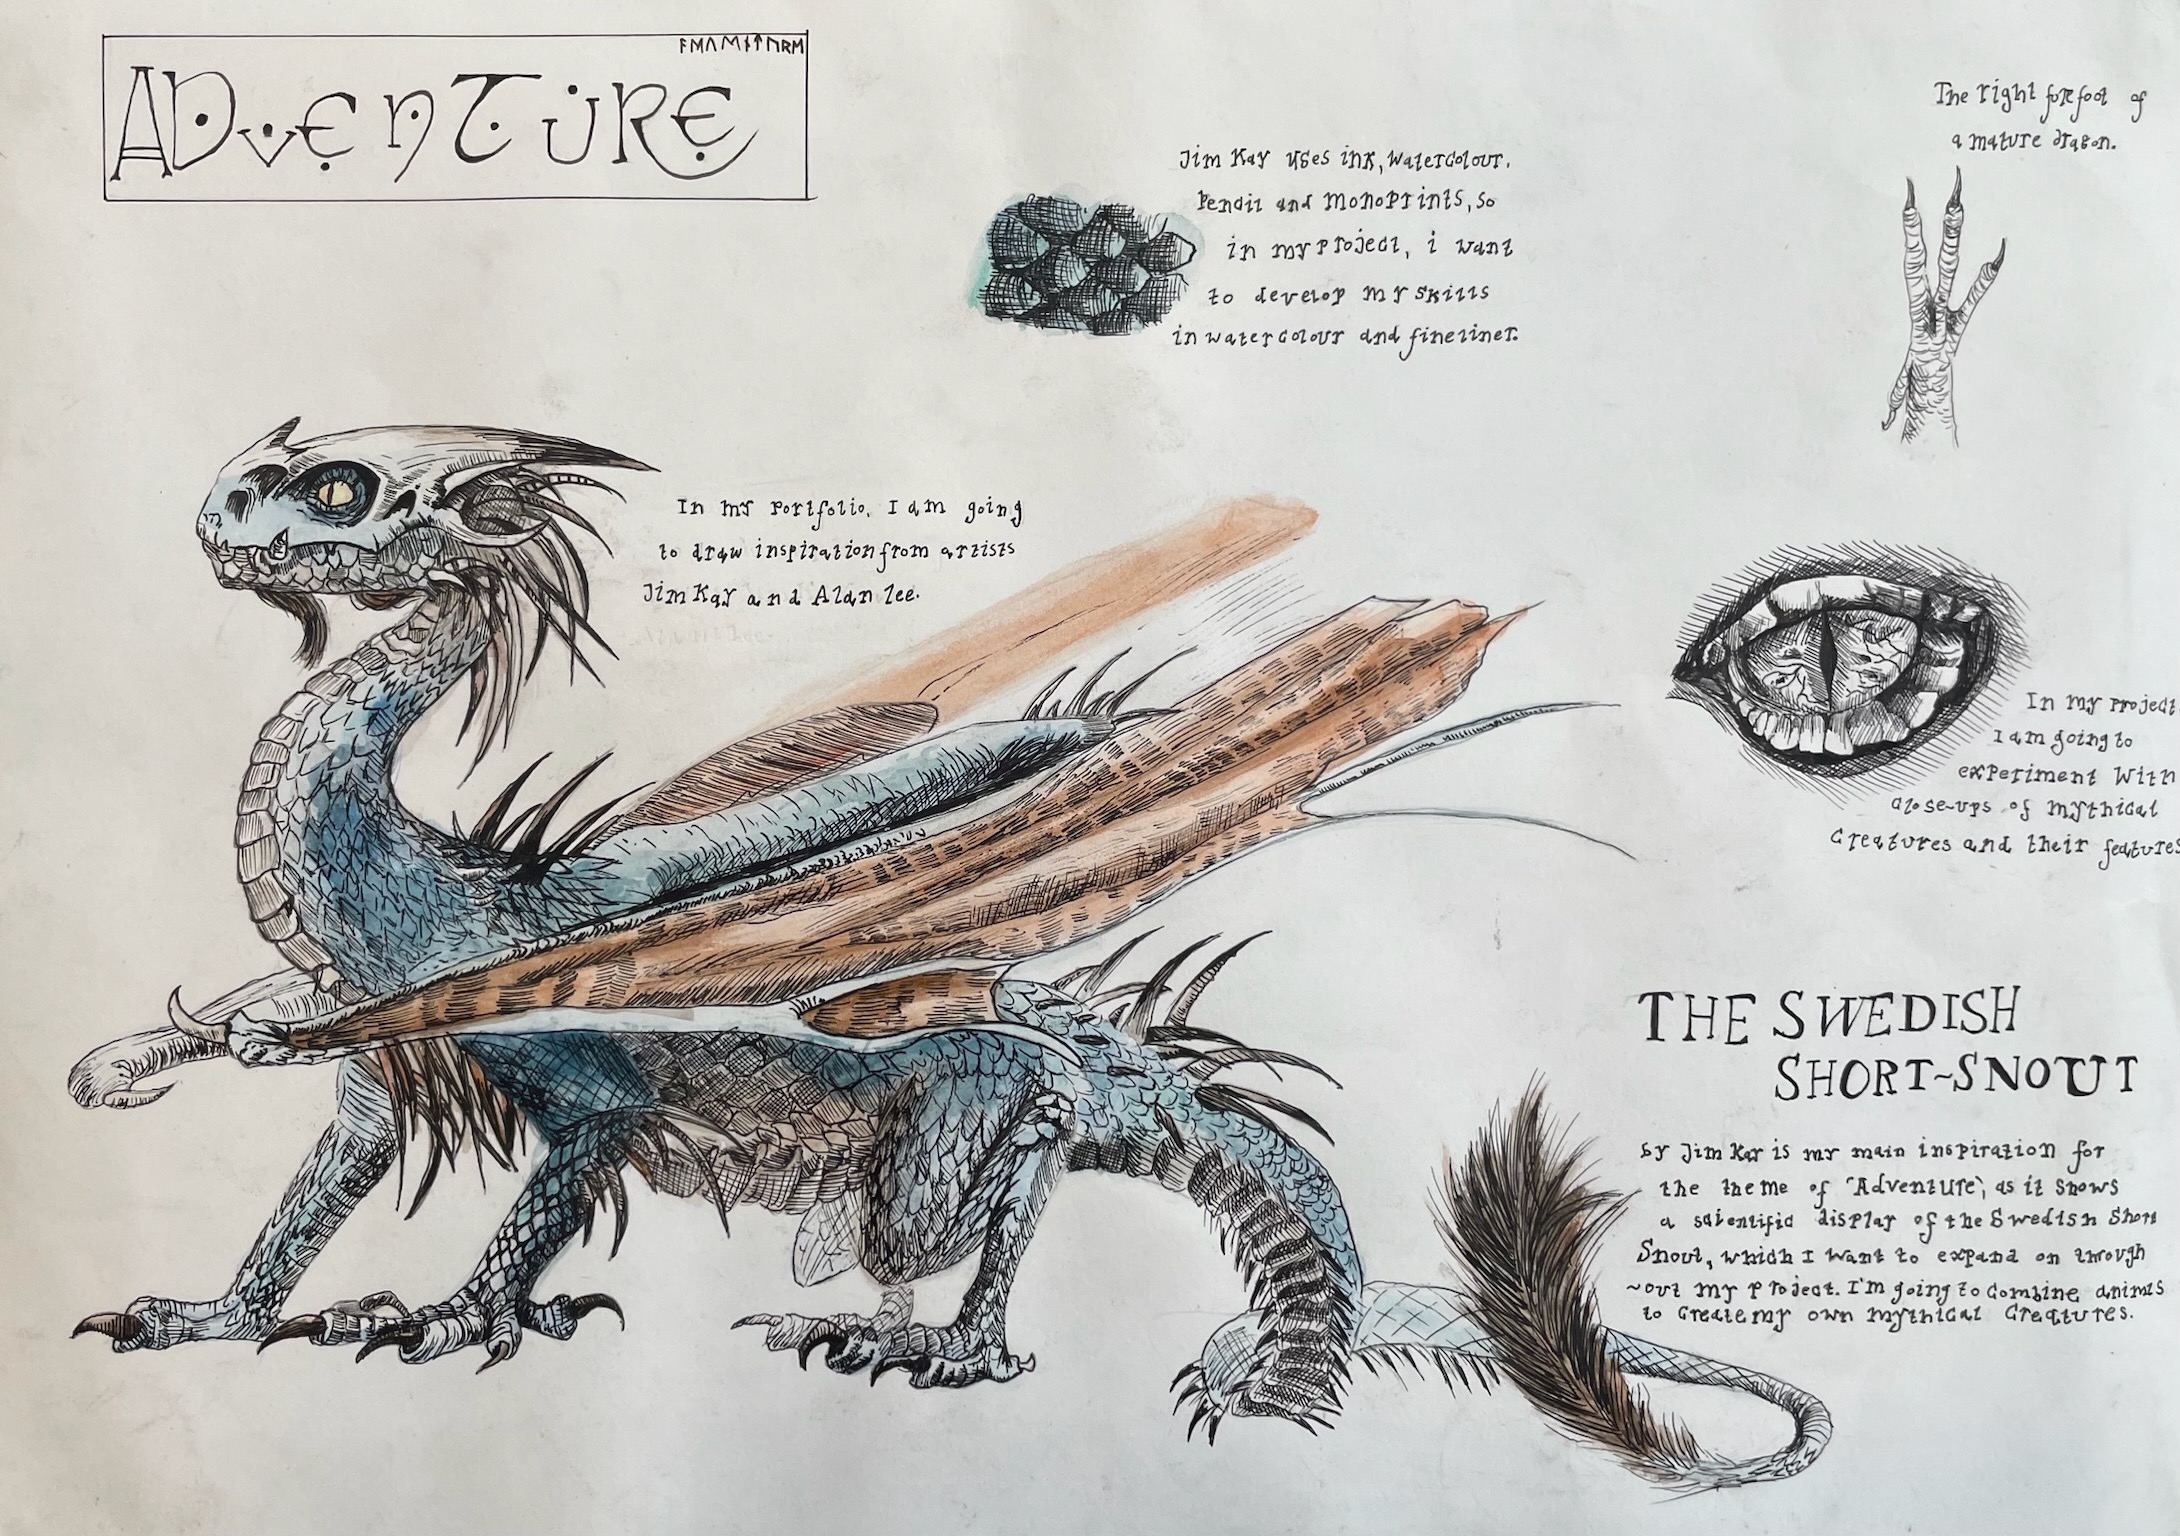 ADVENTURE
Jim Kay uses ink, watercolour,
pencil and monoprints, so
in my project, i want
to develop my skills
in watercolour and fineliner.
The right forefoot of
a mature dragon.
In my portfolio, I am going
to draw inspiration from artists
Jim Kay and Alan lee.
In my project
I am going to
experiment With
close-ups of mythical
Creatures and their features
THE SWEDISH
SHORT~SNOUT
by Jim Kay is my main inspiration for
the theme of 'Adventure', as it shows
a scientific display of the Swedish Short
Snout, which I want to expand on through
~out my project. I'm going to combine animls
to create my own mythical Creatures.